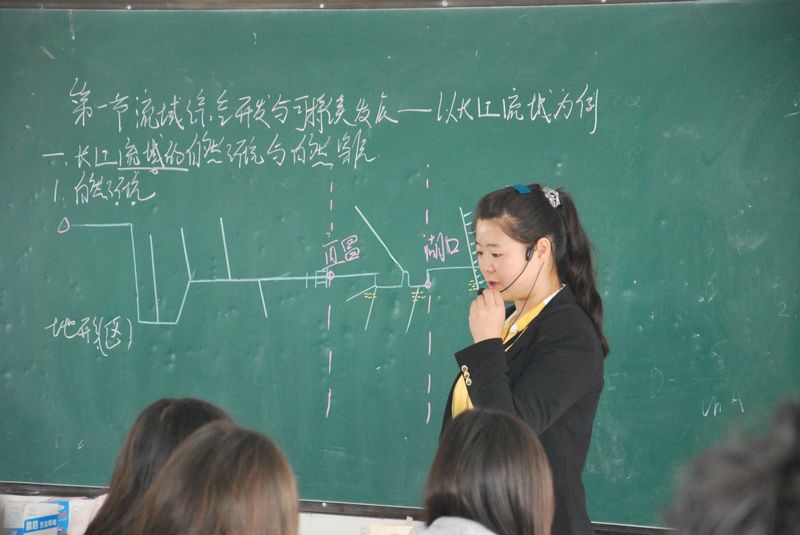 第一节流域综合开发与可持续发展——以长江流域为例
一.长江流域的自然环境与自然灾害
1.自然环境
宜昌
湖口
地形(区)